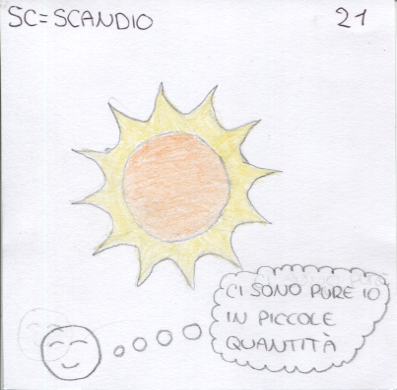 SC=SCANDIO
21
CI SONO PURE IO
IN PICCOLE
QUANTITÀ